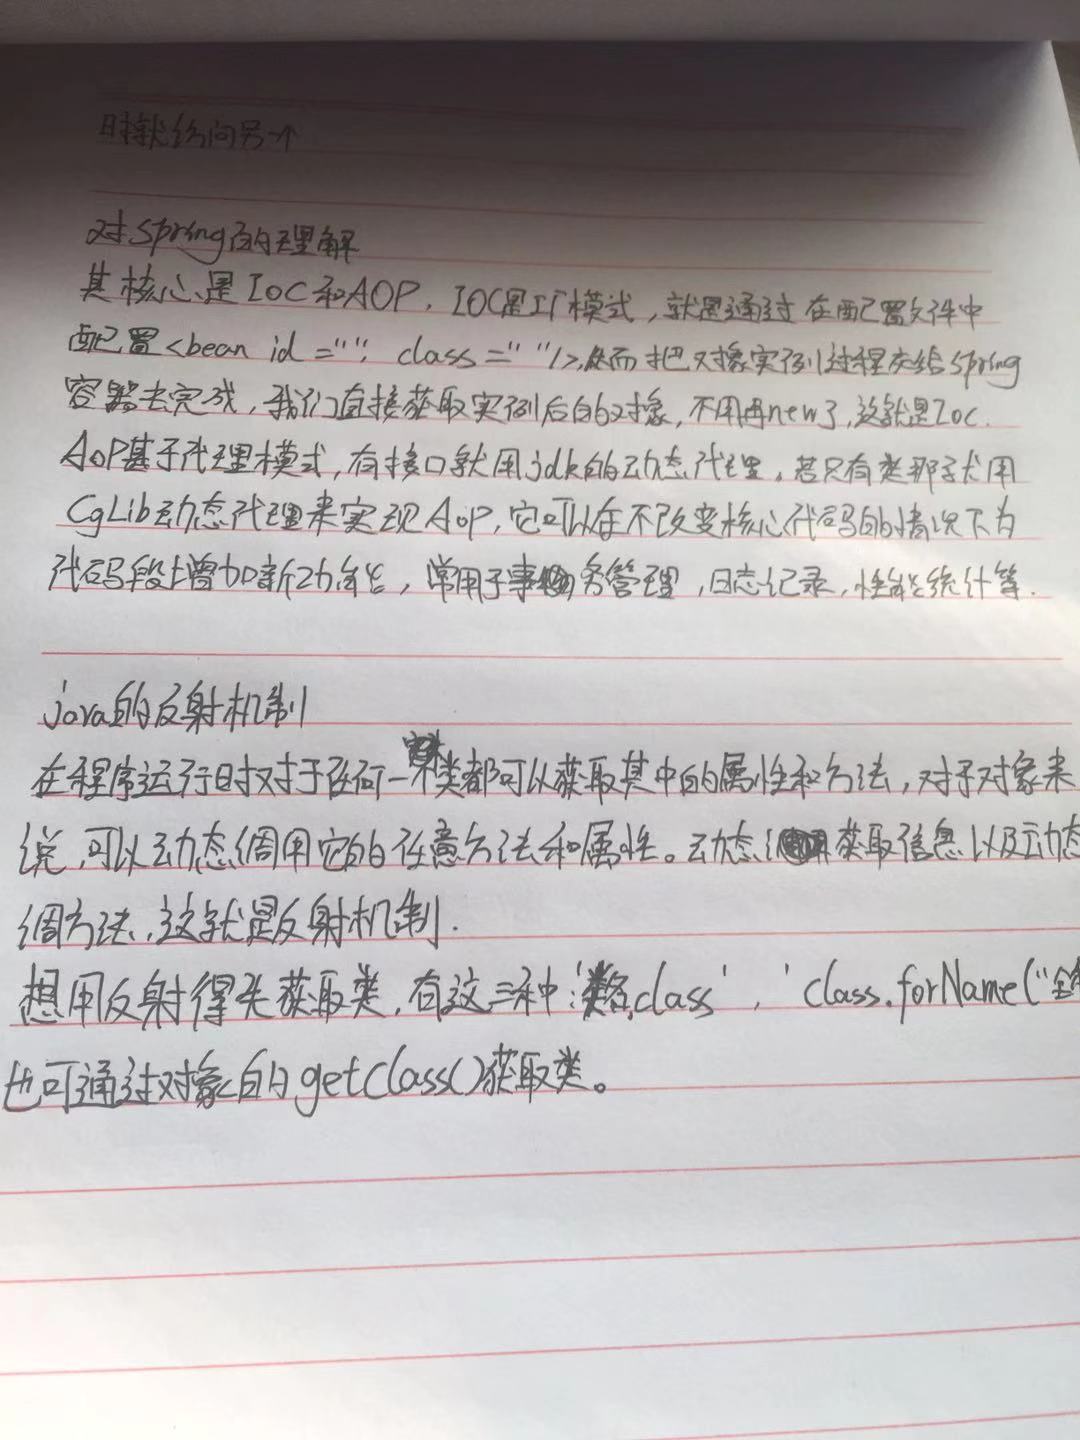 时就访问另一个
对Spring的理解
其核心是IOC和AOP，IOC是工厂模式，就是通过在配置文件中
配置<bean id="" class=""/>，从而把对像实例过程交给Spring
容器去完成，我们直接获取实例后的对象，不用再new了，这就是Ioc.
AOP基于代理模式，有接口就用jdk的动态代理，若只有类那就用
CgLib动态代理来实现AOP，它可以在不改变核心代码的情况下为
代码段增加新功能，常用于事务管理，日志记录，性能统计等.
java的反射机制
在程序运行时对于任何一个类都可以获取其中的属性和方法，对于对象来
说，可以动态调用它的任意方法和属性。动态获取信息以及动态
调方法，这就是反射机制.
想用反射得先获取类，有这三种'类名.class'，'class.forName("全
也可通过对象的getClass()获取类。